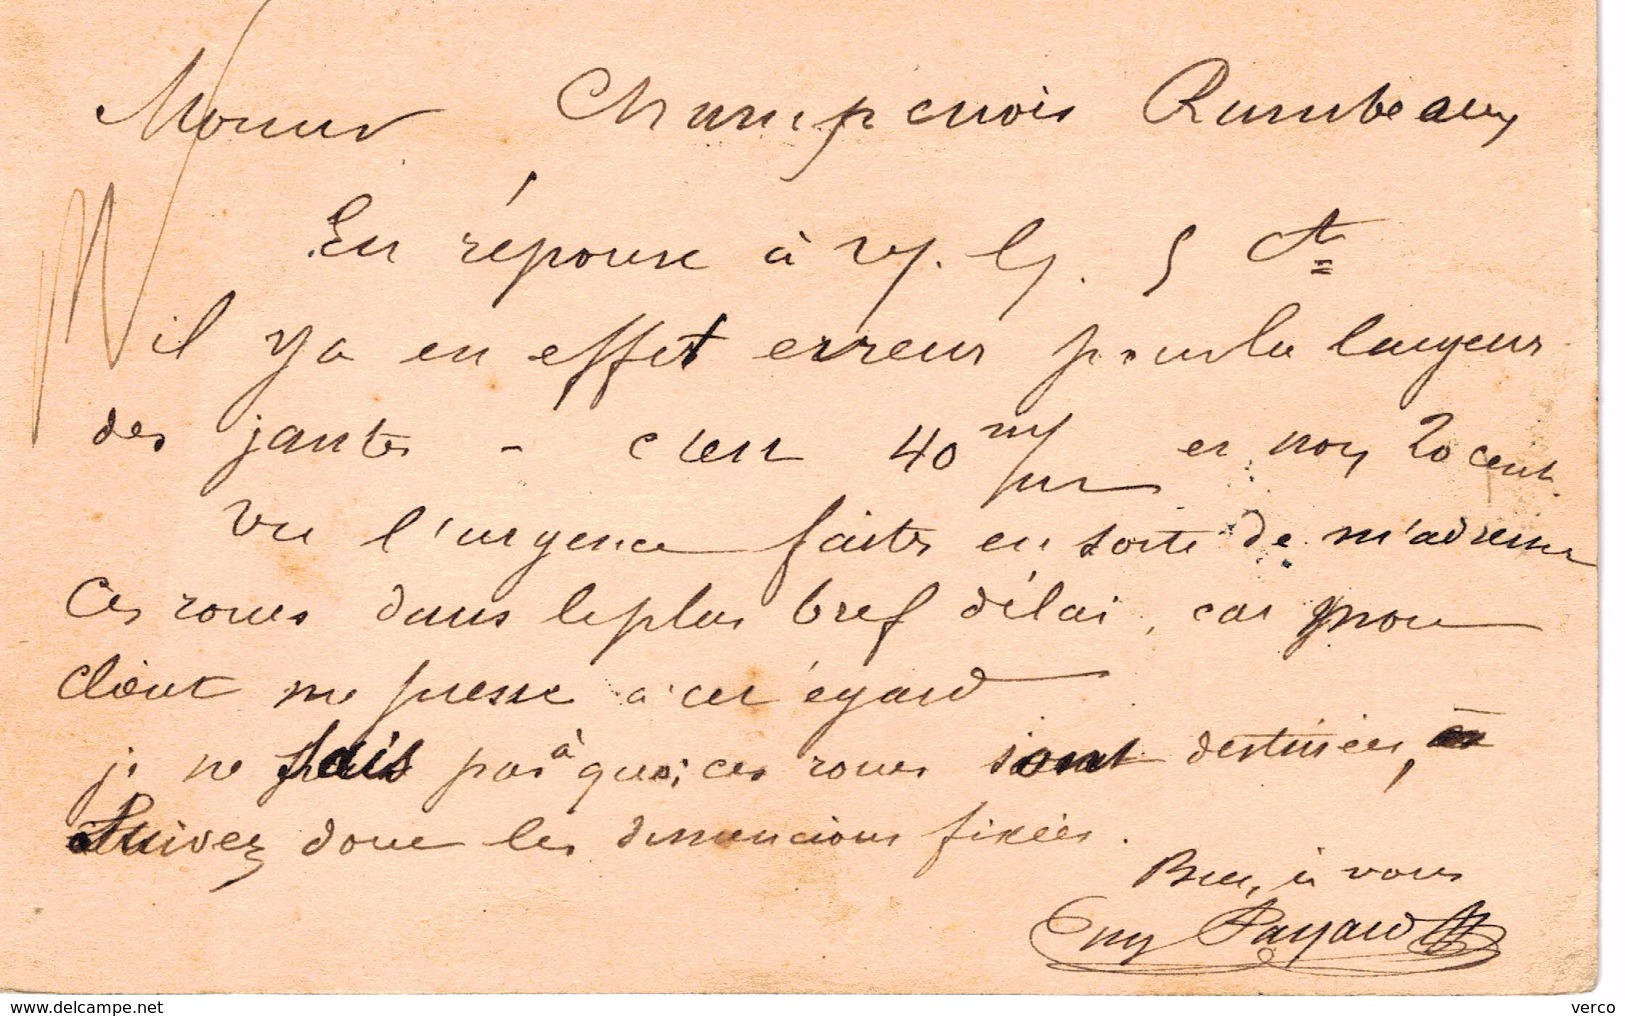 Monsieur Champenois Rambeaux
En réponse à v/. l/. 5 ct
il y a en effet erreur pour la largeur
des jantes - c'est 40 m/m et non 20 cent.
Vu l'urgence faites en sorte de m'adresser
Ces roues dans le plus bref délai, car mon
client me presse à cet égard
je ne sais pas à quoi ces roues sont destinées,
Suivez donc les dimensions fixées.
Bien à vous
Eug Payard
www.delcampe.net
verco